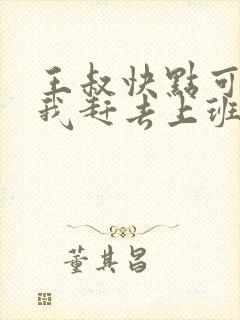 王叔快點可
我赶去上班
董其昌